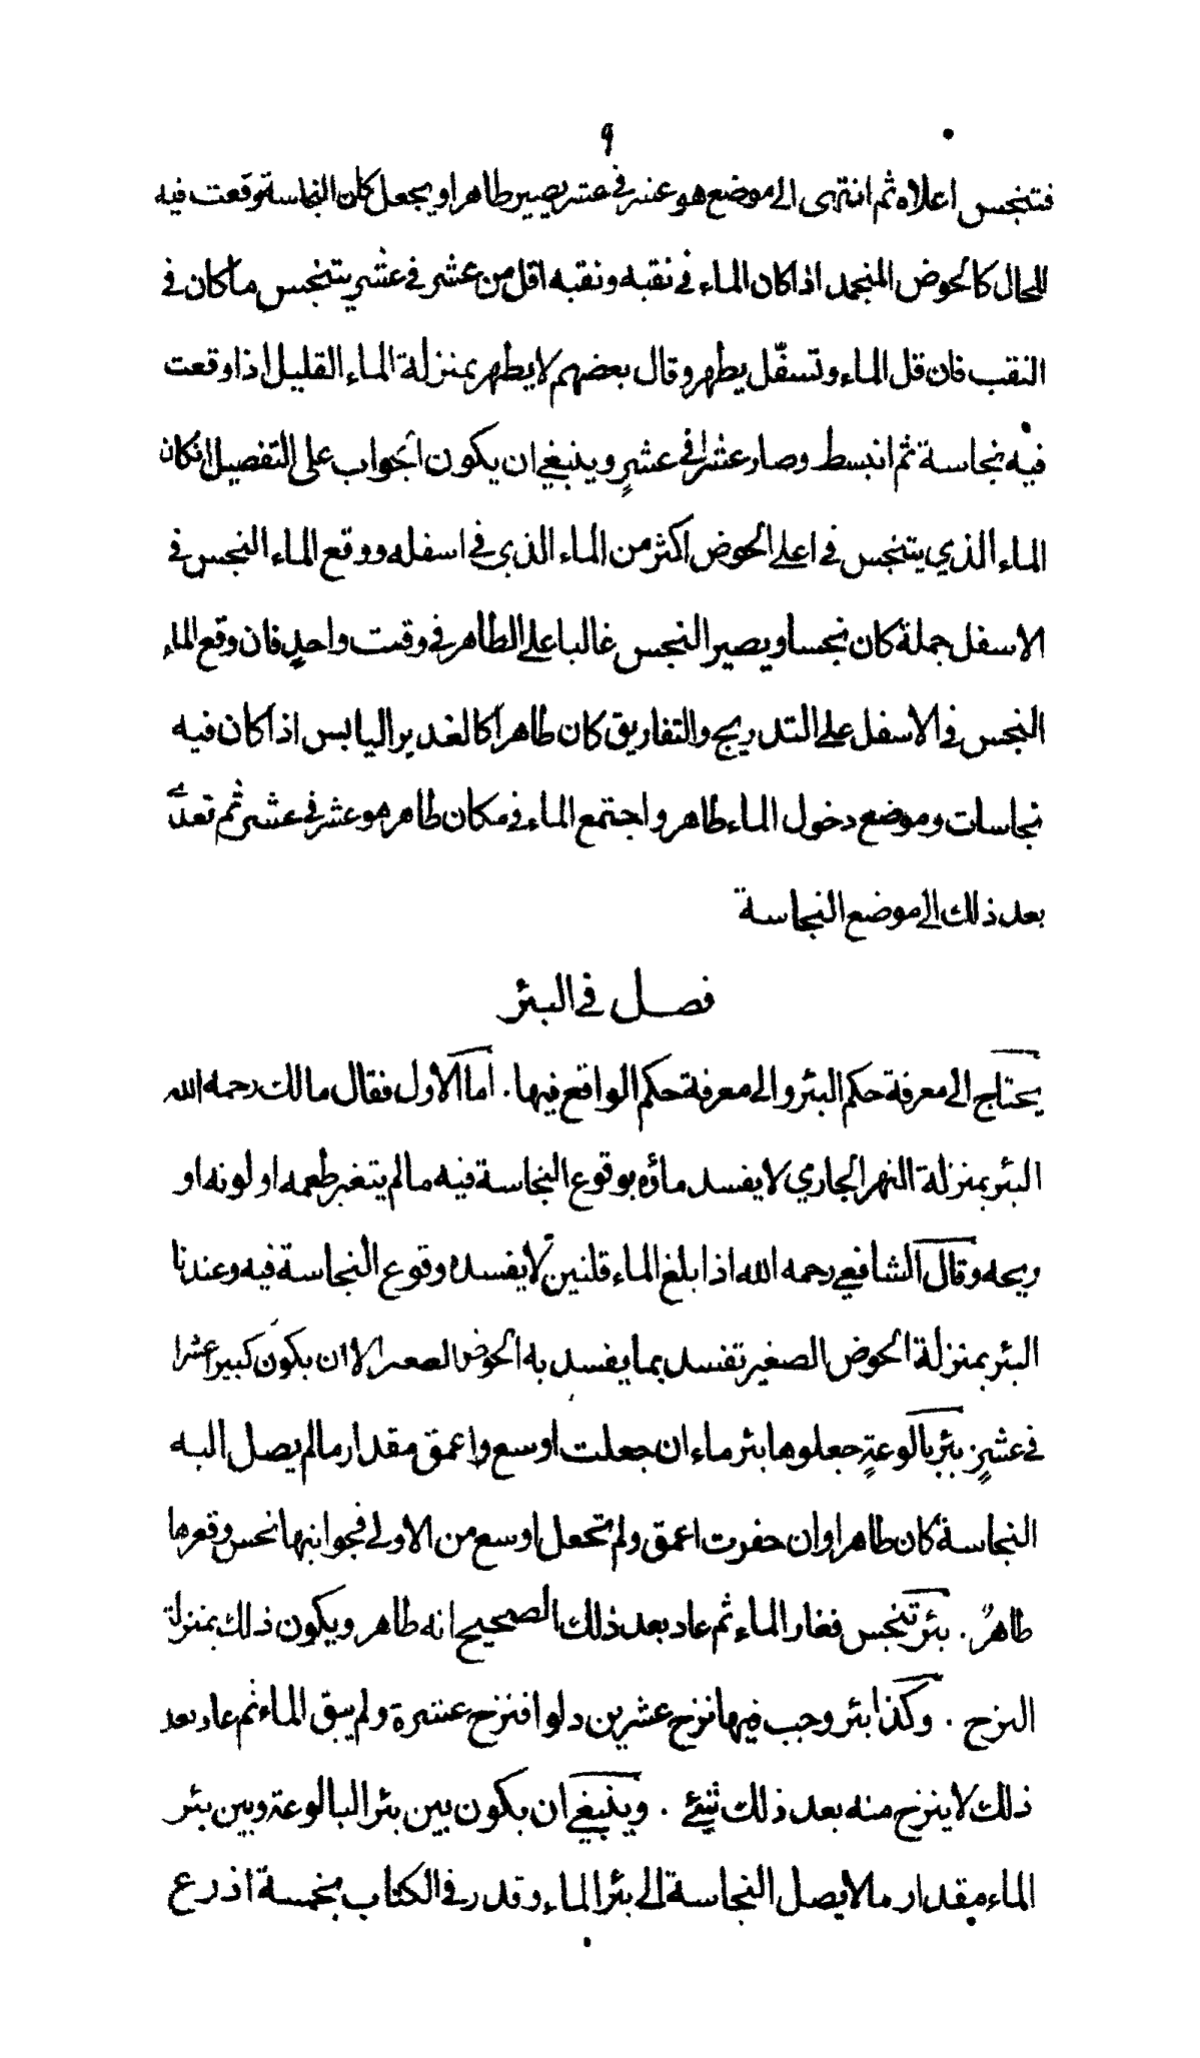 ٩
فتنجس اعلاه ثم انتهى الى موضع هو عشر في عشر يصير طاهرا ويجعل كان النجاسة وقعت فيه
للحال كالحوض المنجمد اذا كان الماء في نقبه ونقبه اقل من عشر في عشر يتنجس ما كان في
النقب فان قل الماء وتسفّل يطهر وقال بعضهم لا يطهر بمنزلة الماء القليل اذا وقعت
فيه نجاسة ثم انبسط وصار عشرا في عشرٍ وينبغي ان يكون الجواب على التفصيل ان كان
الماء الذي يتنجس في اعلى الحوض اكثر من الماء الذي في اسفله ووقع الماء النجس في
الاسفل جملة كان نجسا ويصير النجس غالبا على الطاهر في وقت واحدٍ فان وقع الماء
النجس في الاسفل على التدريج والتفاريق كان طاهرا كالغدير اليابس اذا كان فيه
نجاسات وموضع دخول الماء طاهر واجتمع الماء في مكان طاهر هو عشر في عشر ثم تعدى
بعد ذلك الى موضع النجاسة
فصل في البئر
يحتاج الى معرفة حكم البئر والى معرفة حكم الواقع فيها . اما الاول فقال مالك رحمه الله
البئر بمنزلة النهر الجاري لا يفسد ماؤه بوقوع النجاسة فيه ما لم يتغير طعمه او لونه او
ريحه وقال الشافعي رحمه الله اذا بلغ الماء قلتين لا يفسده وقوع النجاسة فيه وعندنا
البئر بمنزلة الحوض الصغير تفسد بما يفسد به الحوض الصغير الا ان يكون كبيرا عشرا
في عشرٍ بئر بالوعةٍ جعلوها بئر ماء ان جعلت اوسع واعمق مقدار ما لم يصل اليه
النجاسة كان طاهرا وان حفرت اعمق ولم تجعل اوسع من الاولى فجوانبها نجس وقعرها
طاهرٌ . بئر تنجس فغار الماء ثم عاد بعد ذلك الصحيح انه طاهر ويكون ذلك بمنزلة
النزح . وكذا بئر وجب فيها نزح عشرين دلوا فنزح عشرة ولم يبق الماء ثم عاد بعد
ذلك لا ينزح منه بعد ذلك شيئ . وينبغي ان يكون بين بئر البالوعة وبين بئر
الماء مقدار ما لا يصل النجاسة الى بئر الماء وقدر في الكتاب بخمسة اذرع